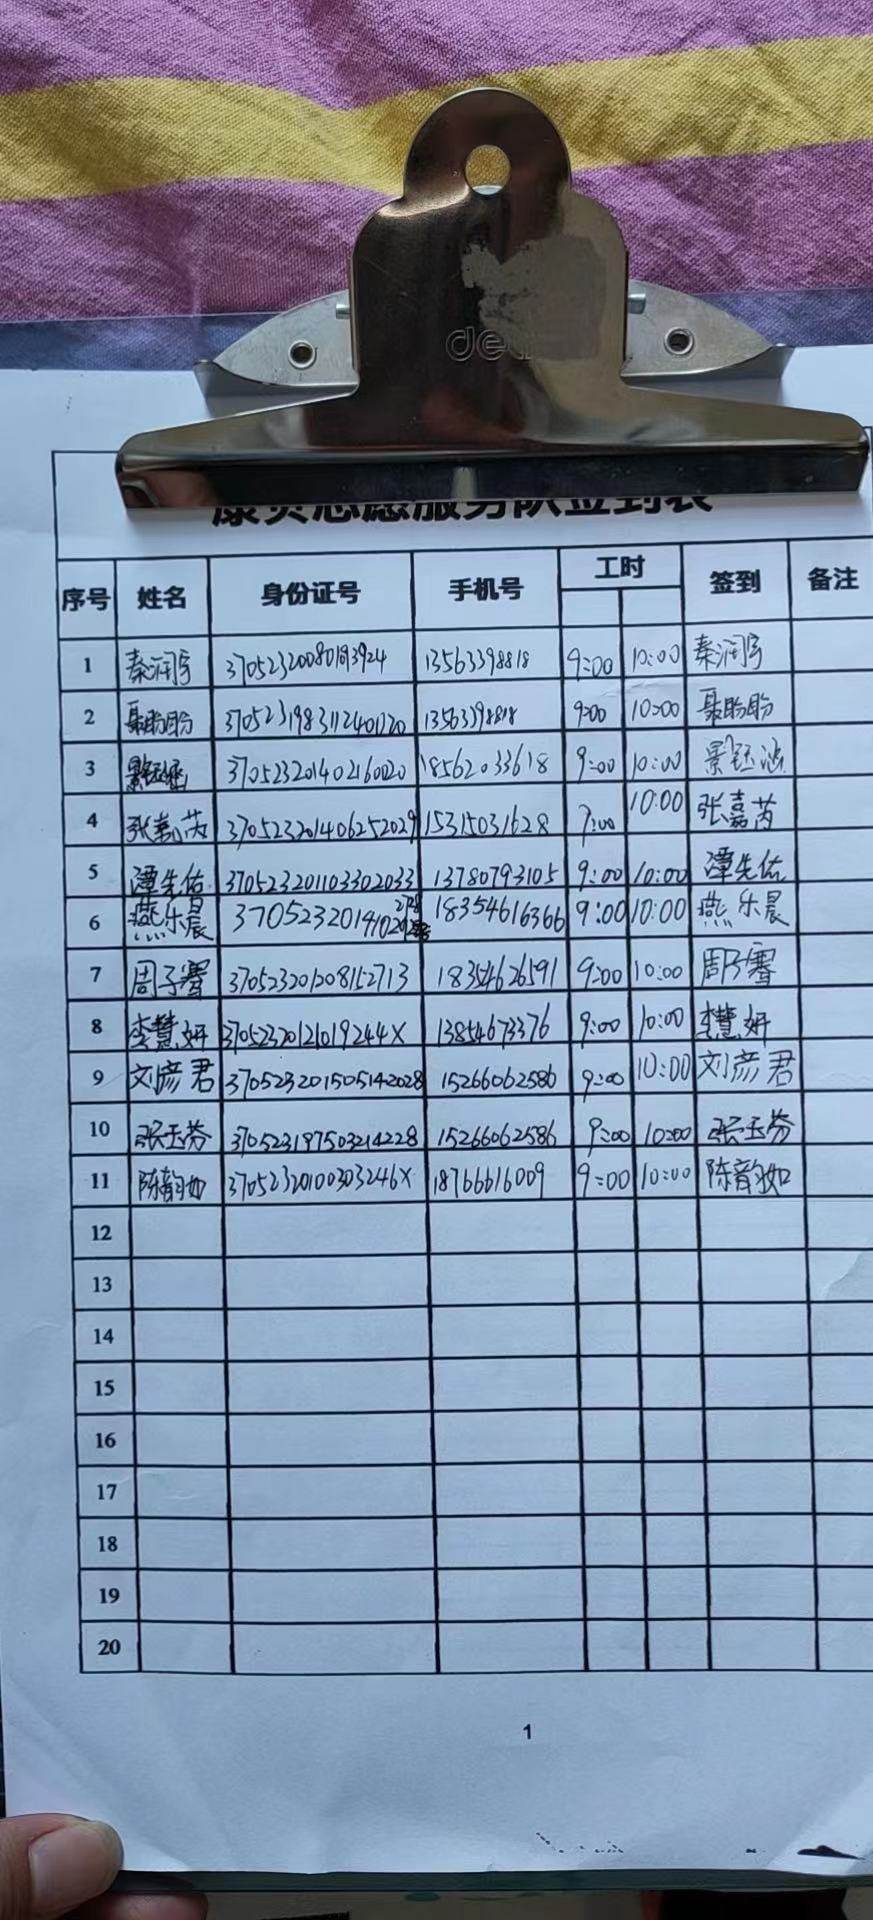 deli
志愿服务队签到表
序号 姓名 身份证号 手机号 工时 签到 备注
1 秦润宇 13563398818 9:00 10:00 秦润宇
2 聂盼盼 9:00 10:00 聂盼盼
3 370523201402160020 18562033618 9:00 10:00
4 张嘉芮 370523201406252029 15315031628 9:00 10:00 张嘉芮
5 谭先佑 370523201103302033 13780793105 9:00 10:00 谭先佑
6 燕乐晨 18354616366 9:00 10:00 燕乐晨
7 周子骞 370523201208152713 18354626591 9:00 10:00 周子骞
8 李慧妍 37052320121019244X 13854673376 9:00 10:00 李慧妍
9 刘彦君 370523201505142028 15266062586 9:00 10:00 刘彦君
10 张玉芬 370523197503214228 15266062586 9:00 10:00 张玉芬
11 陈韵如 37052320100303246X 18766616009 9:00 10:00 陈韵如
12
13
14
15
16
17
18
19
20
1